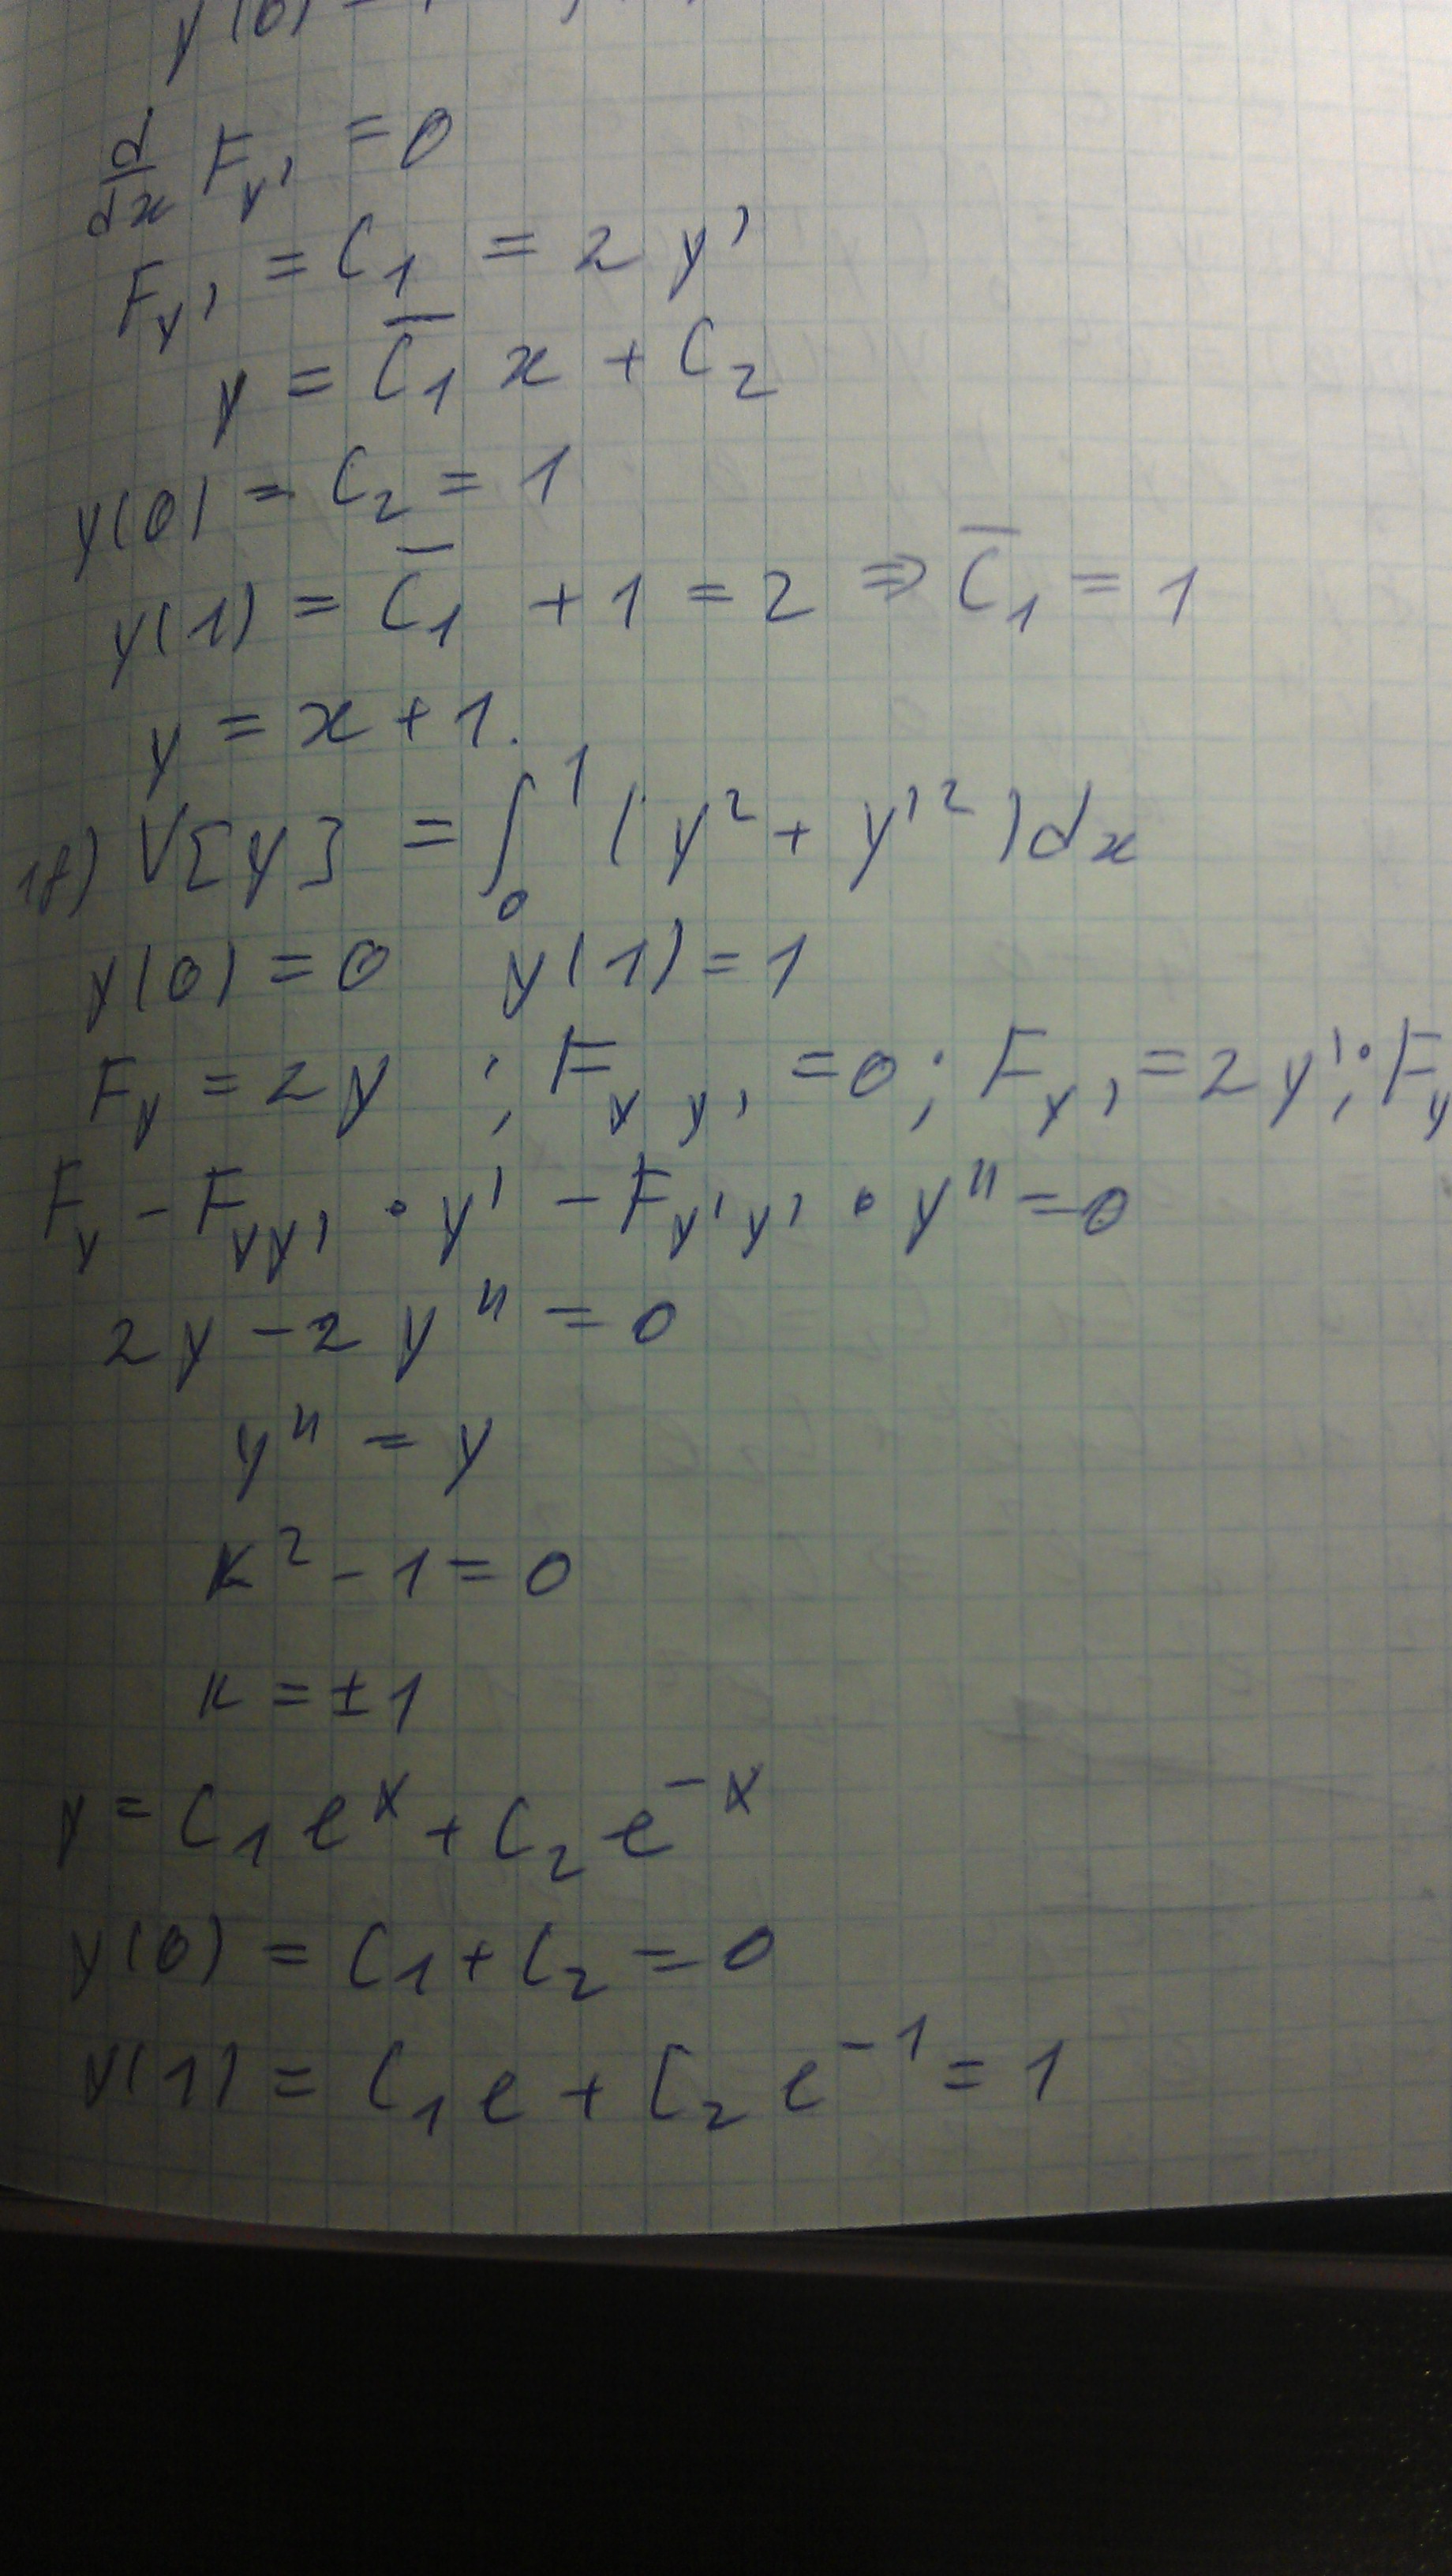 y(0)
d/dx F_y' = 0
F_y' = C₁ = 2y'
y = C̄₁ x + C₂
y(0) = C₂ = 1
y(1) = C̄₁ + 1 = 2 ⇒ C̄₁ = 1
y = x + 1.
V[y] = ∫₀¹ (y² + y'²) dx
y(0) = 0 y(1) = 1
F_y = 2y ; F_yy' = 0 ; F_y' = 2y' ; F_y
F_y - F_yy' · y' - F_y'y' · y'' = 0
2y - 2y'' = 0
y'' = y
k² - 1 = 0
k = ±1
y = C₁ e^x + C₂ e^-x
y(0) = C₁ + C₂ = 0
y(1) = C₁ e + C₂ e^-1 = 1